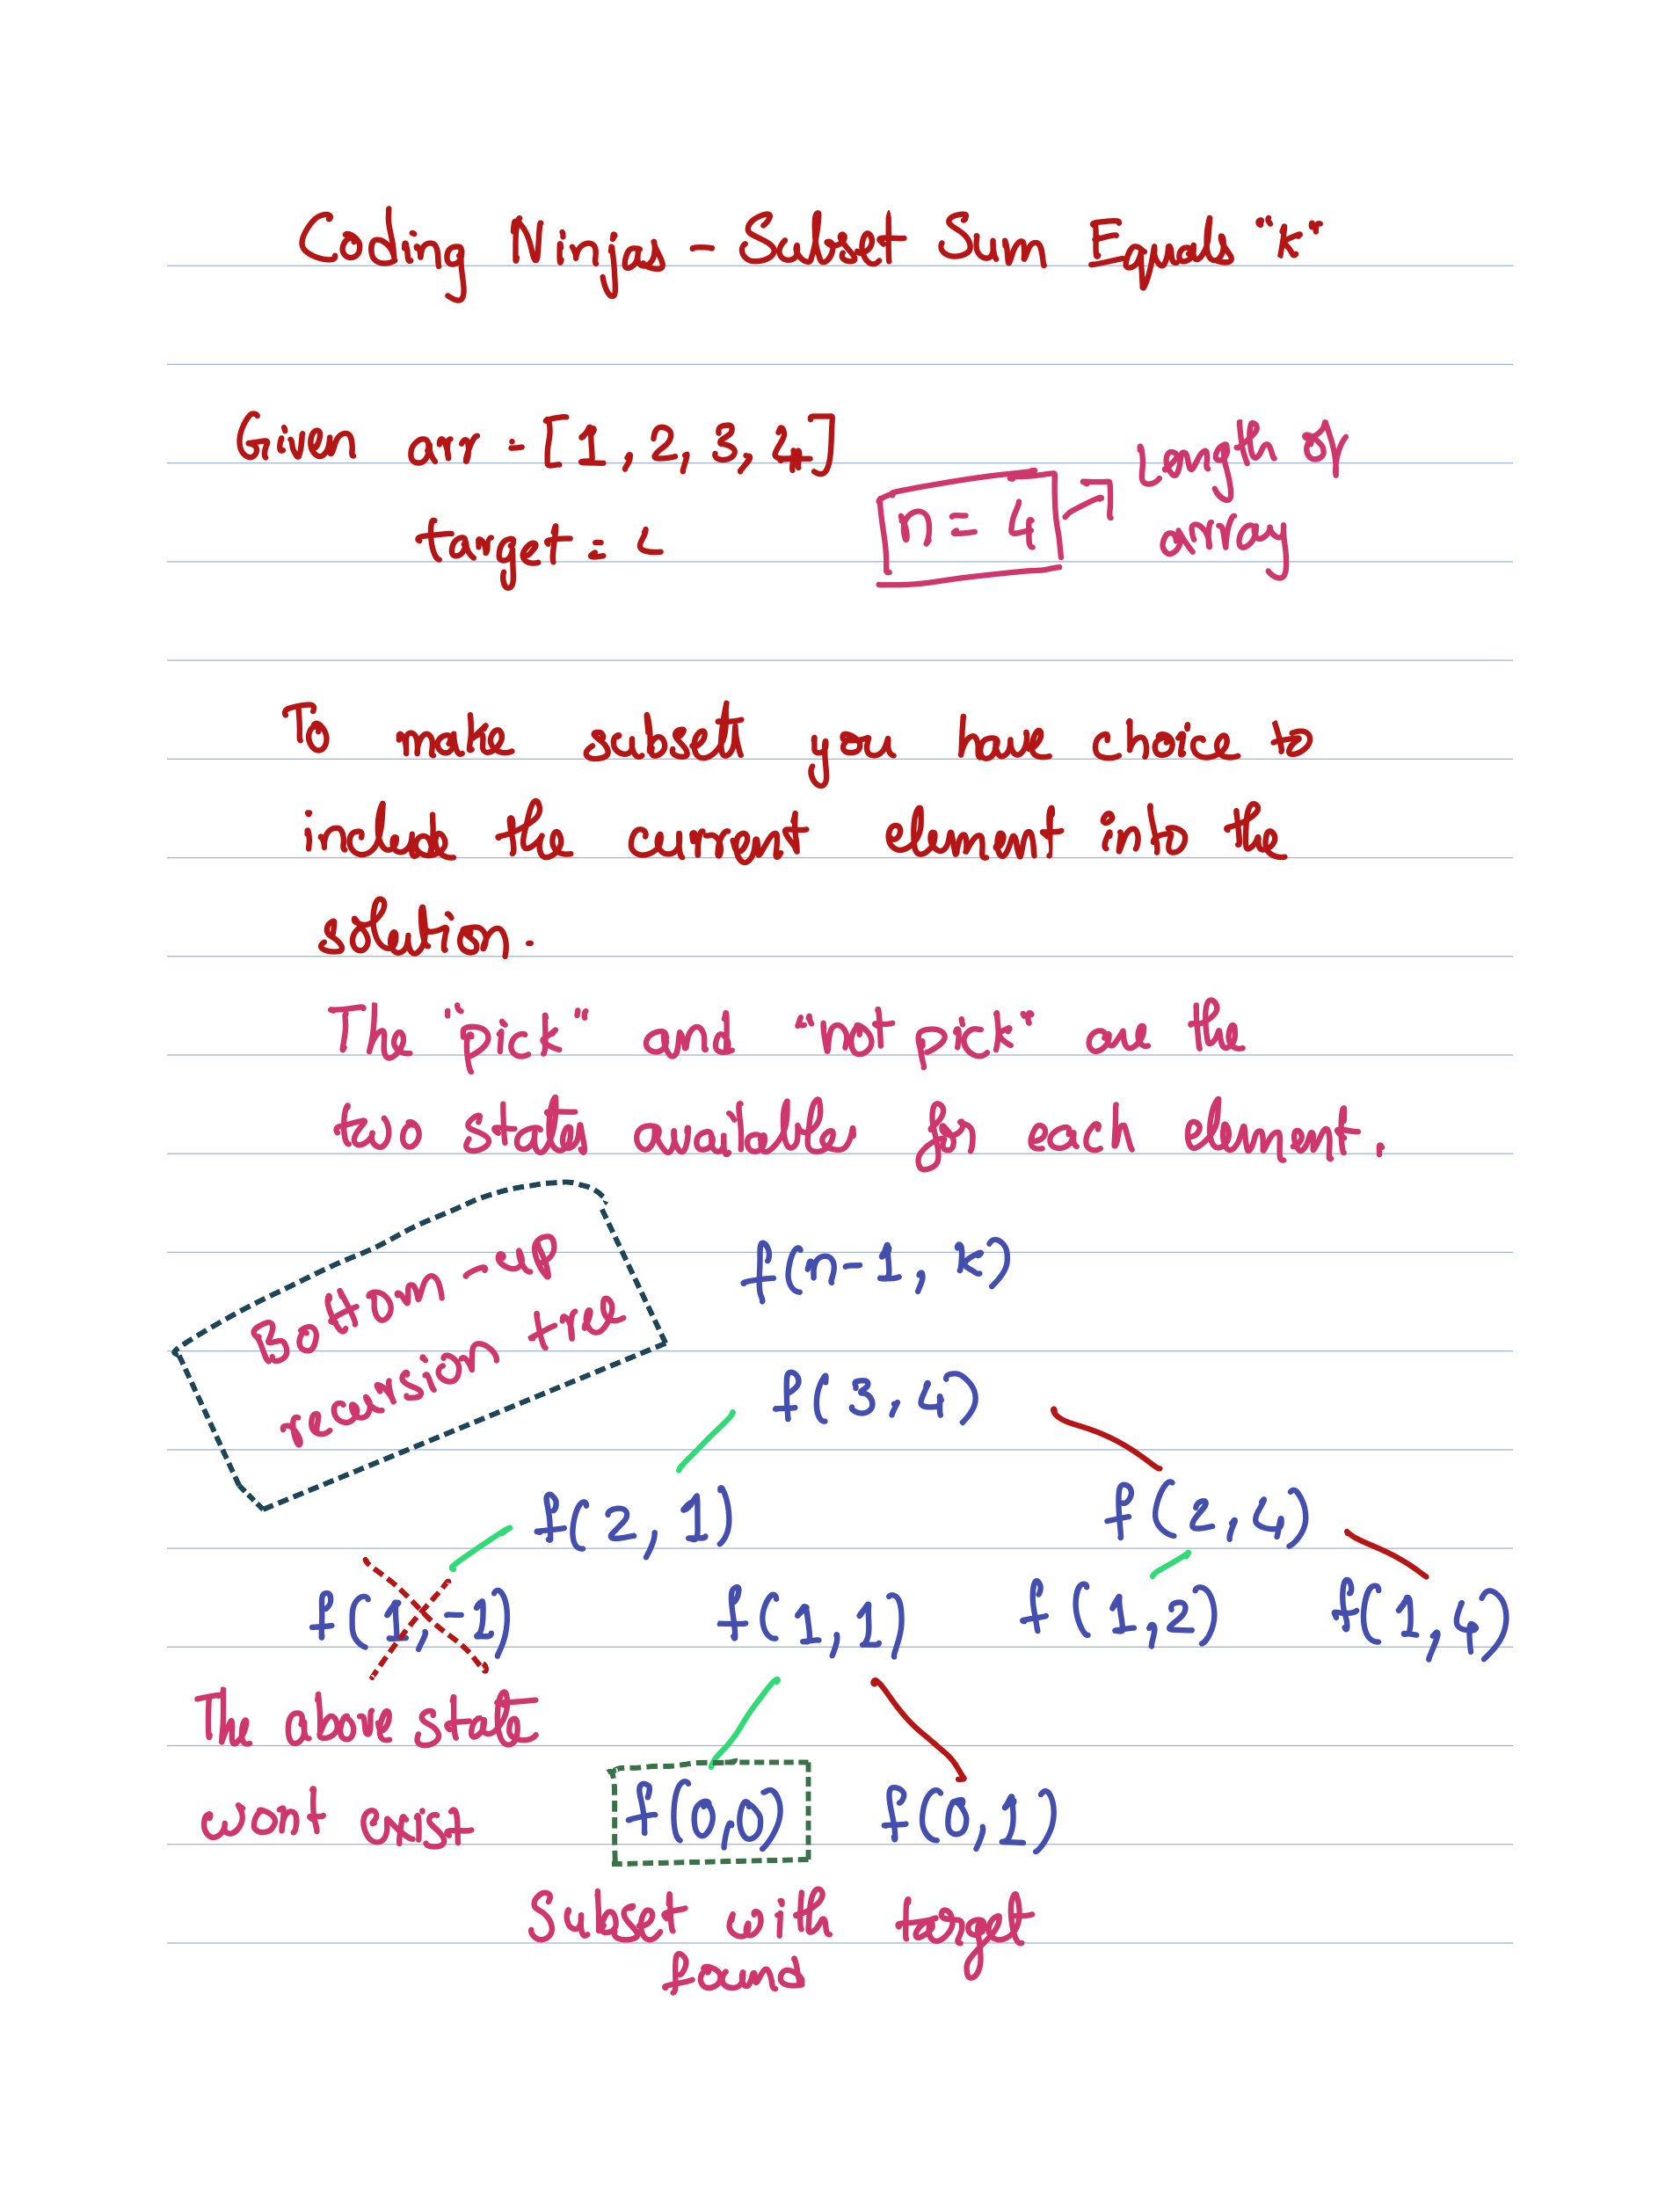 Coding Ninjas - Subset Sum Equals "K"
Given arr = [1, 2, 3, 4]
target =
n = 4 → Length of
array
To make subset you have choice to
include the current element into the
solution.
The "pick" and "not pick" are the
two states available for each element.
Bottom-up
recursion tree
f(n-1, k)
f(3,4)
f(2, 1) f(2,4)
f(1,-1) f(1,1) f(1,2) f(1,4)
The above state
wont exist
f(0,0) f(0,1)
Subset with target
found